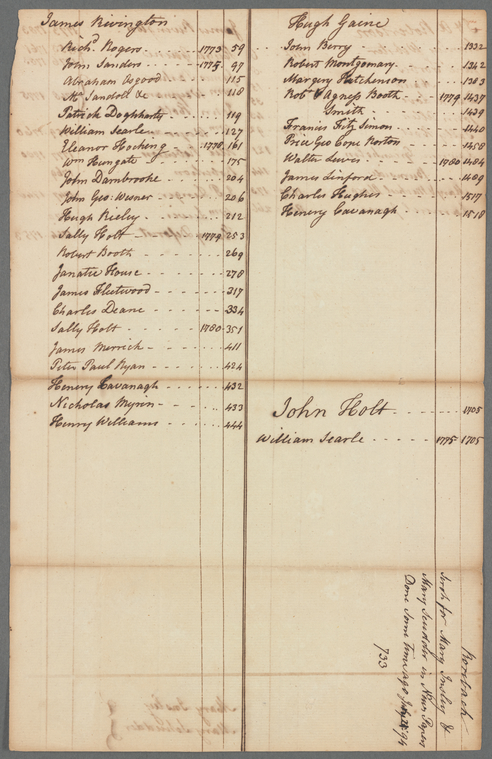 James Rivington
Rich.d Rogers 1773 59
John Sanders 1775 97
Abraham Osgood 115
Mr Sandell &c 118
Patrick Doghharty 119
William Searle 127
Eleanor Hocking 1778 161
Wm Hungate 175
John Dambrooke 204
John Geo: Wesner 206
Hugh Reeley 212
Sally Holt 1779 253
Robert Booth 269
Janatie House 278
James Fleetwood 317
Charles Deane 334
Sally Holt 1780 351
James Merrick 411
Peter Paul Ryan 424
Henery Cavanagh 432
Nicholas Myrin 433
Henry Williams 444
Hugh Gaine
John Berry 1332
Robert Montgomary 1342
Margery Hutchenson 1383
Robt & Agness Booth 1779 1437
Smith 1439
Francis Fitz Simon 1440
Price Geo Cope Norton 1458
Walter Lewis 1780 1484
James Linford 1489
Charles Hughes 1517
Henery Cavanagh 1518
John Holt 1705
William Searle 1775 1705
Rorback
Serch for Mary Insley &
Mary Scudder in News Papers
Done Some time ago 94
733